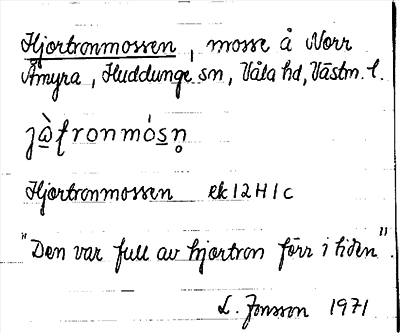 Hjortronmossen, mosse å Norr
Åmyra, Huddunge sn, Våla hd, Västm. l.
jὼ̲ʈronmós̲n̥
Hjortronmossen ek 12H1c
"Den var full av hjortron förr i tiden".
L. Jonsson 1971